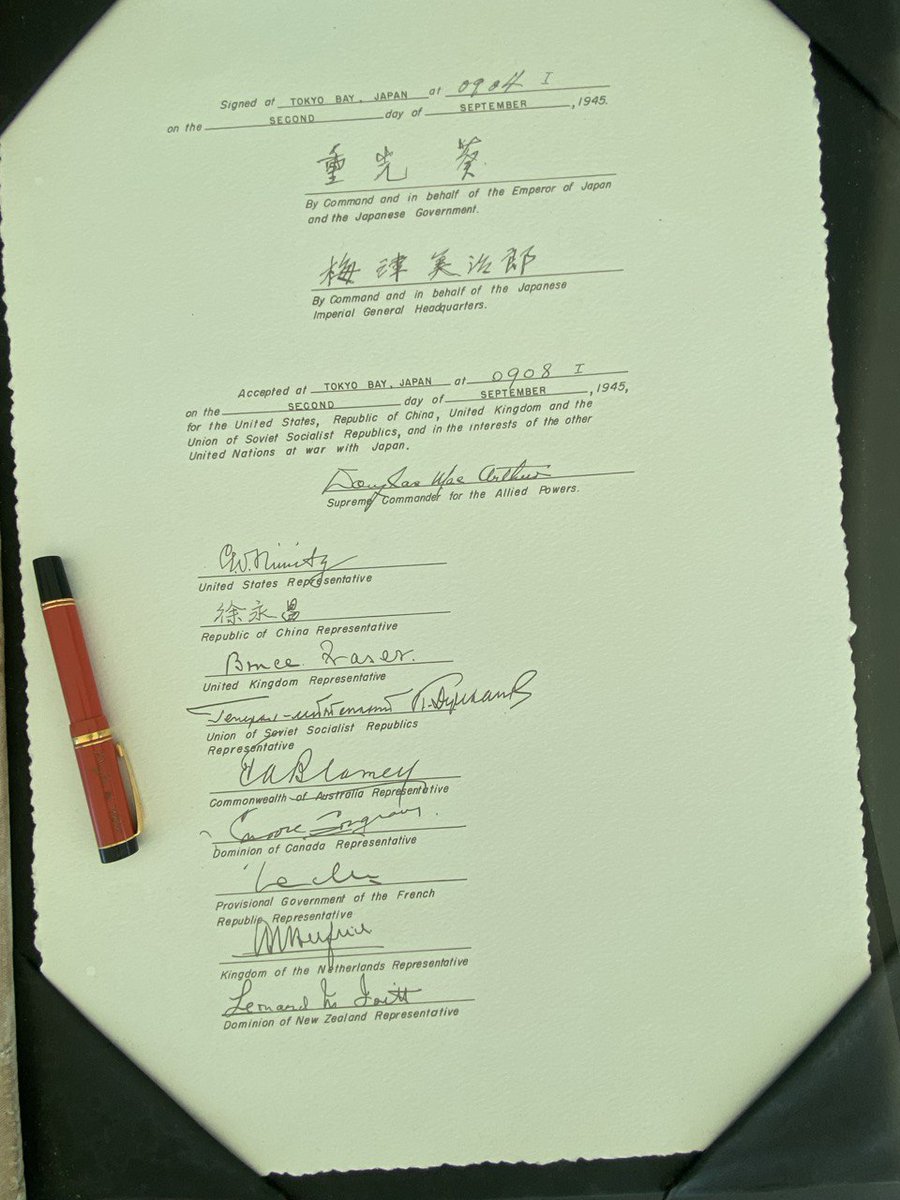 Signed at TOKYO BAY, JAPAN at 0904 I
on the SECOND day of SEPTEMBER, 1945.
重光 葵
By Command and in behalf of the Emperor of Japan
and the Japanese Government.
梅津美治郎
By Command and in behalf of the Japanese
Imperial General Headquarters.
Accepted at TOKYO BAY, JAPAN at 0908 I
on the SECOND day of SEPTEMBER, 1945,
for the United States, Republic of China, United Kingdom and the
Union of Soviet Socialist Republics, and in the interests of the other
United Nations at war with Japan.
Douglas MacArthur
Supreme Commander for the Allied Powers.
C.W. Nimitz
United States Representative
徐永昌
Republic of China Representative
Bruce Fraser.
United Kingdom Representative
Генерал-лейтенант
Union of Soviet Socialist Republics
Representative
T A Blamey
Commonwealth of Australia Representative
Moore Cosgrave.
Dominion of Canada Representative
Leclerc
Provisional Government of the French
Republic Representative
Helfrich
Kingdom of the Netherlands Representative
Leonard M Isitt
Dominion of New Zealand Representative